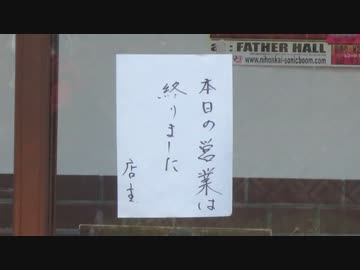 本日の営業は
終りました
店主
at: FATHER HALL
www.nihonkai-sonicboom.com